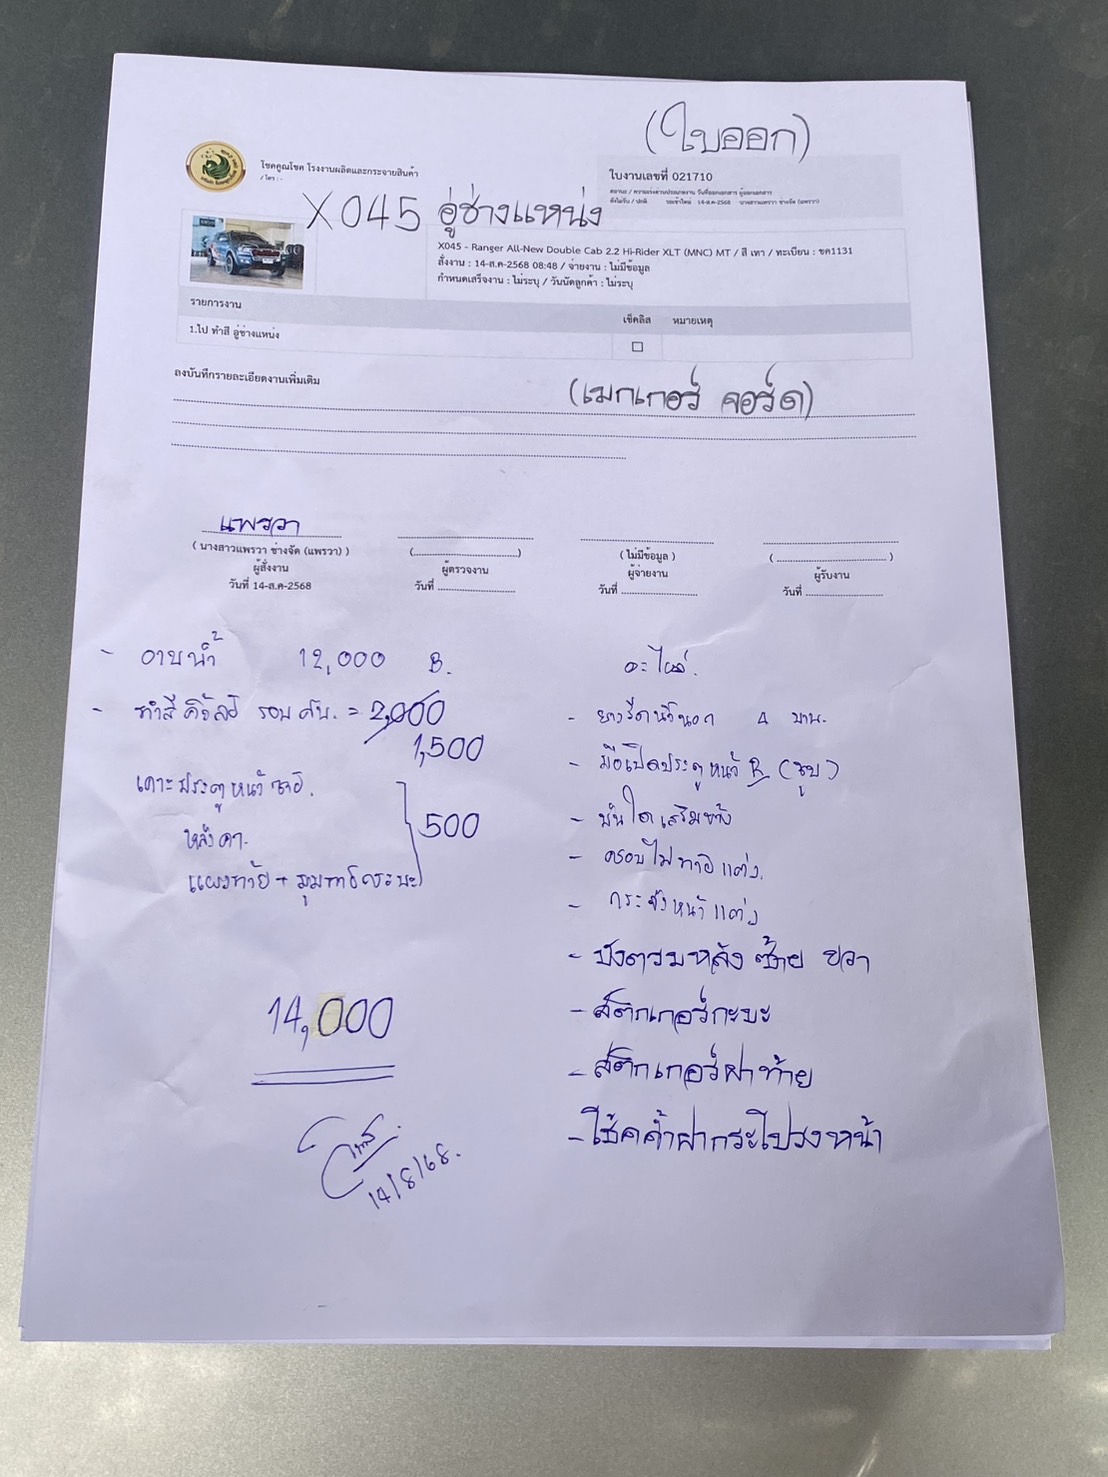 (ใบออก)
โชคคูณโชค โรงงานผลิตและกระจายสินค้า
/ โทร : -
ใบงานเลขที่ 021710
X045 อู่ช่างแหน่ง
X045 - Ranger All-New Double Cab 2.2 Hi-Rider XLT (MNC) MT / สี เทา / ทะเบียน : ขค1131
สั่งงาน : 14-ส.ค-2568 08:48 / จ่ายงาน : ไม่มีข้อมูล
กำหนดเสร็จงาน : ไม่ระบุ / วันนัดลูกค้า : ไม่ระบุ
รายการงาน เช็คลิส หมายเหตุ
1.ไป ทำสี อู่ช่างแหน่ง
ลงบันทึกรายละเอียดงานเพิ่มเติม
(เมกเกอร์ จอร์ด)
แพรวา
( นางสาวแพรวา ช่างจัด (แพรวา) )
ผู้สั่งงาน
วันที่ 14-ส.ค-2568
ผู้ตรวจงาน
วันที่
( ไม่มีข้อมูล )
ผู้จ่ายงาน
วันที่
ผู้รับงาน
วันที่
- อาบน้ำ 12,000 B.
- ทำสีคิ้วล้อ รอบคัน. = 2,000
1,500
เคาะประตูหน้าซ้าย.
หลังคา.
500
14,000
14/8/68.
อะไหล่.
- ยางรีดน้ำนอก 4 บาน.
- มือเปิดประตูหน้า R (ชุบ)
- บันไดเสริมข้าง
- ครอบไฟท้ายแต่ง.
- กระจังหน้าแต่ง
- บังตรมหลัง ซ้าย ขวา
- สติกเกอร์กะบะ
- สติกเกอร์ฝาท้าย
- โช้คค้ำฝากระโปรงหน้า